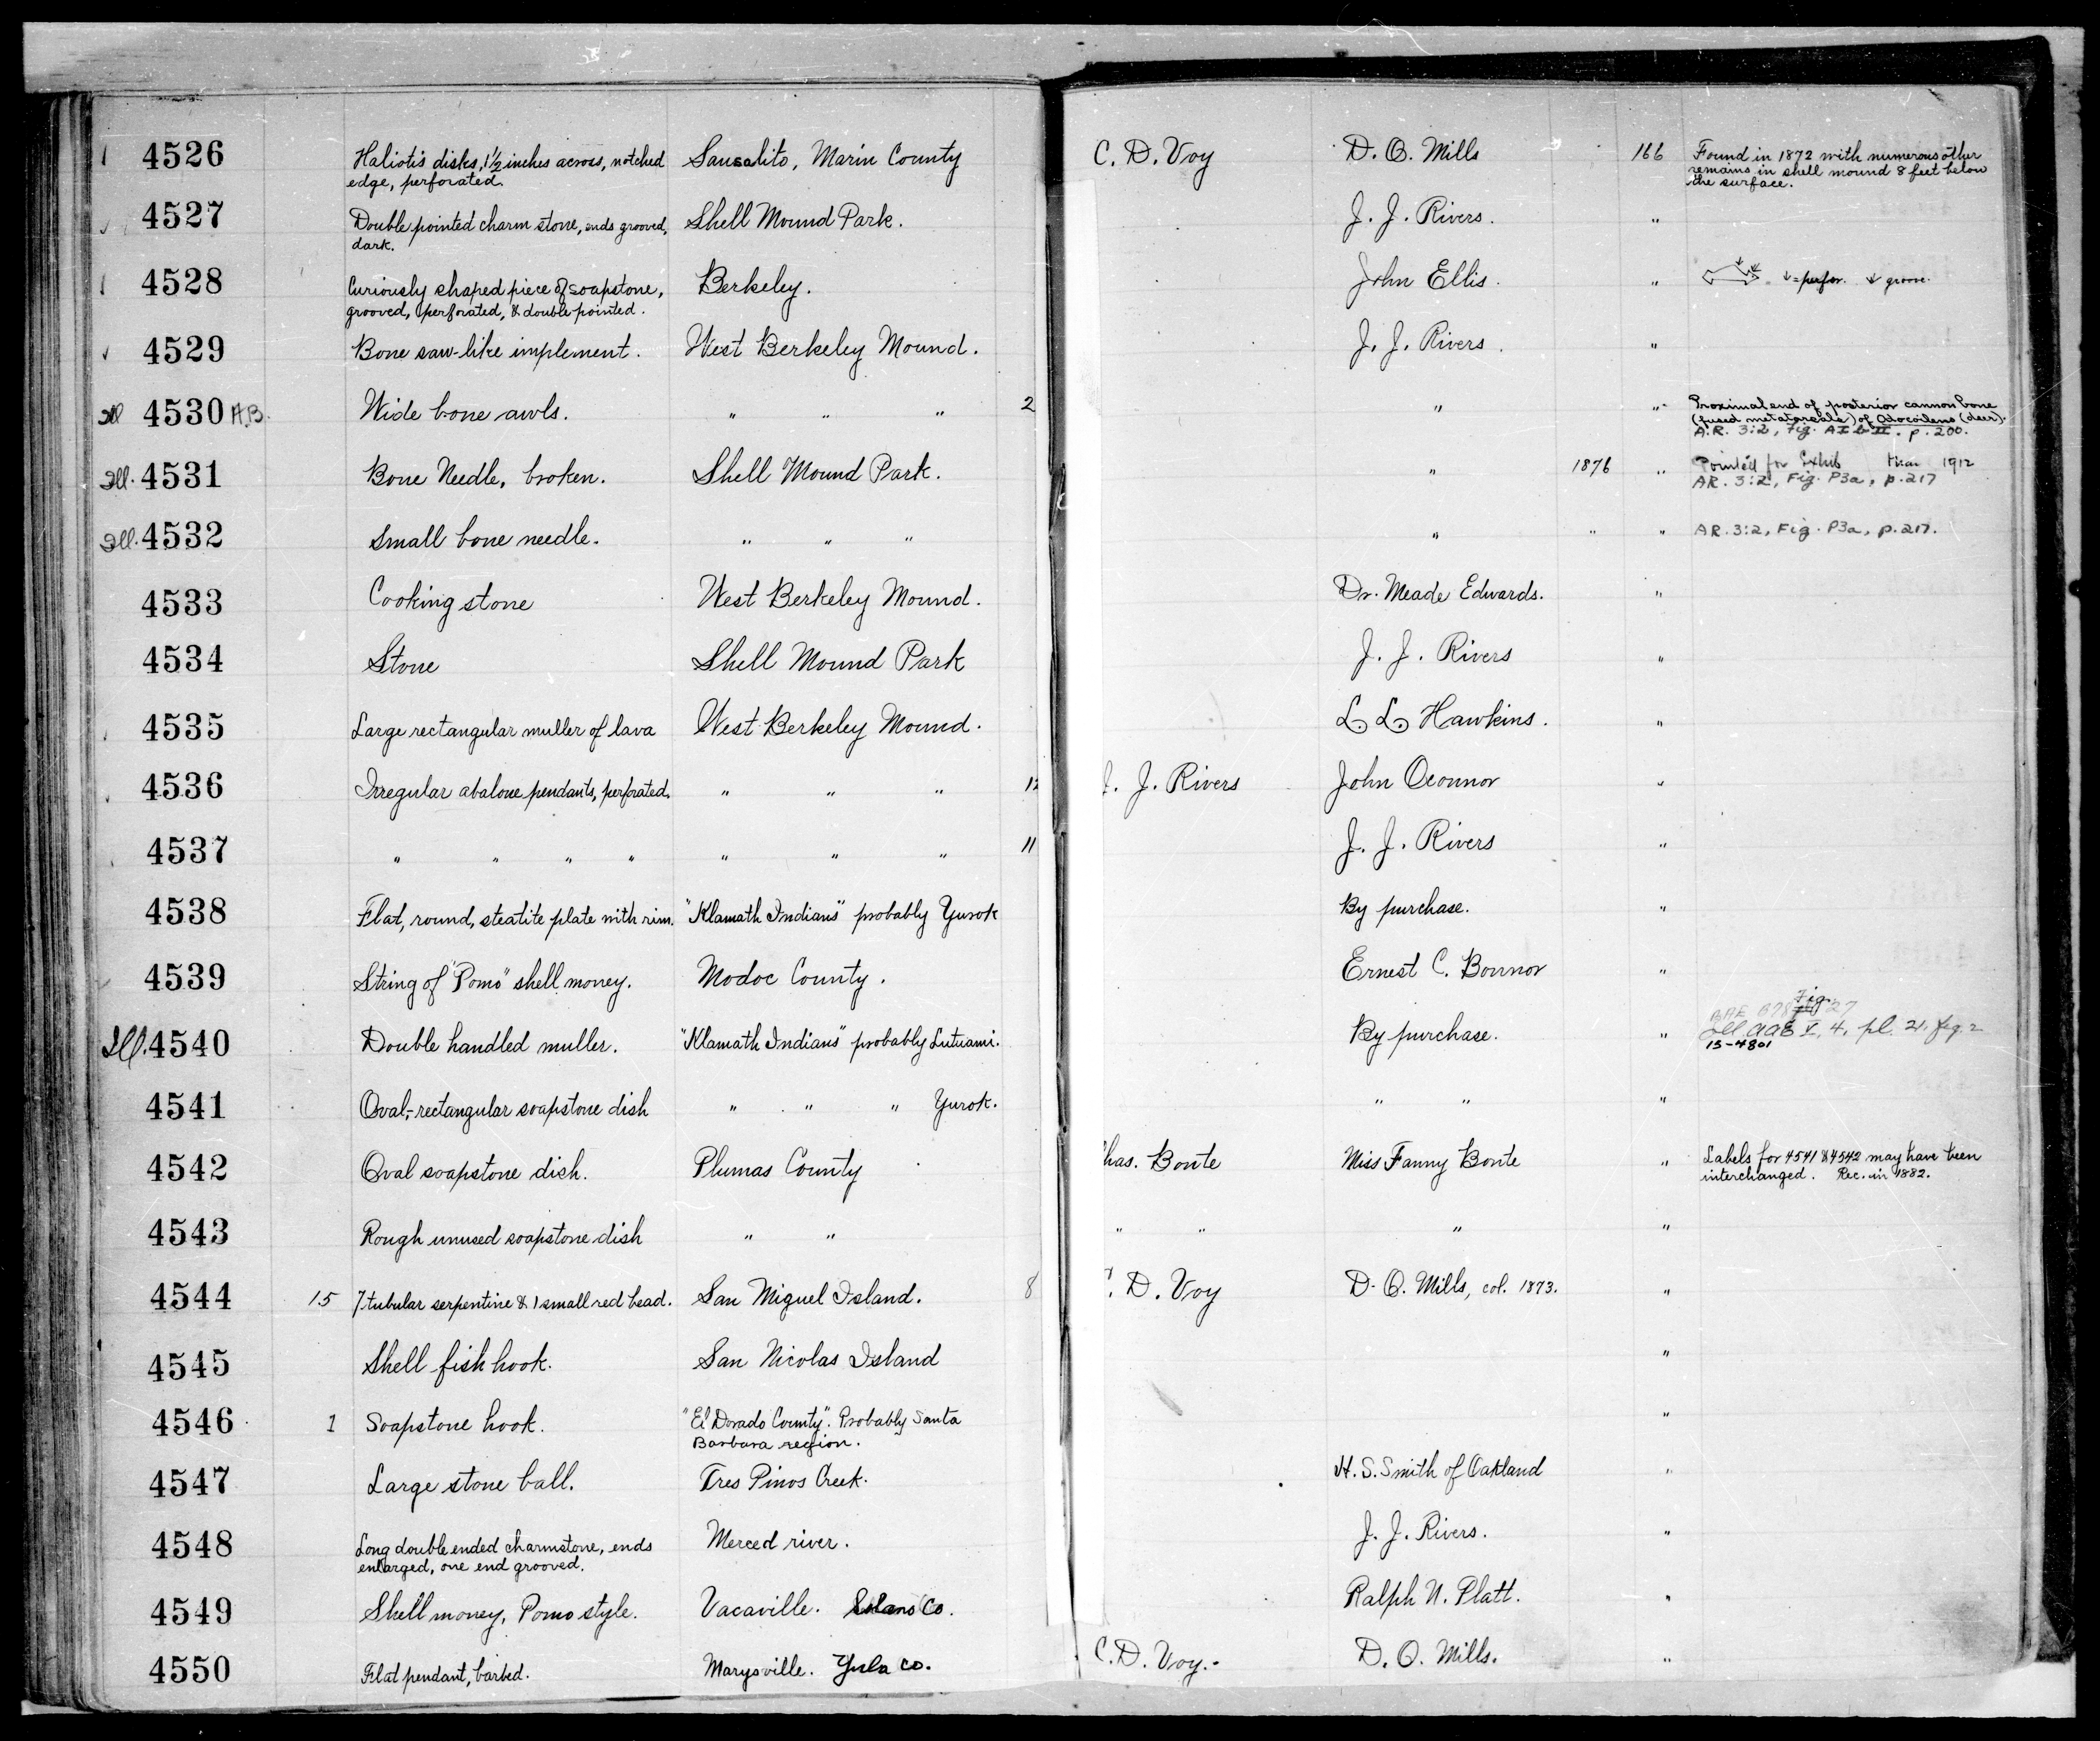 4526 Haliotis disks, 1½ inches across, notched Sausalito, Marin County C. D. Voy D. O. Mills 166 Found in 1872 with numerous other
edge, perforated. remains in shell mound 8 feet below
the surface.
4527 Double pointed charm stone, ends grooved, Shell Mound Park. J. J. Rivers. "
dark.
4528 Curiously shaped piece of soapstone, Berkeley. John Ellis. " = perfor. groove.
grooved, perforated, & double pointed.
4529 Bone saw-like implement. West Berkeley Mound. J. J. Rivers. "
Ill 4530 A,B. Wide bone awls. " " " 2 " " Proximal end of posterior cannon bone
(fused metatarsals) of Odocoileus (deer).
A.R. 3:2, Fig. A I b II. p. 200.
Ill. 4531 Bone Needle, broken. Shell Mound Park. " 1876 " Pointed for Exhib 1912
AR. 3:2, Fig. P3a, p. 217
Ill. 4532 Small bone needle. " " " " " " AR. 3:2, Fig. P3a, p. 217.
4533 Cooking stone West Berkeley Mound. Dr. Meade Edwards. "
4534 Stone Shell Mound Park J. J. Rivers "
4535 Large rectangular muller of lava West Berkeley Mound. L. L. Hawkins. "
4536 Irregular abalone pendants, perforated. " " " J. Rivers John Oconnor "
4537 " " " " " " " 11 J. J. Rivers "
4538 Flat, round, steatite plate with rim. "Klamath Indians" probably Yurok By purchase. "
4539 String of "Pomo" shell money. Modoc County. Ernest C. Bonnor "
Fig.
BAE B78 27
Ill. 4540 Double handled muller. "Klamath Indians" probably Lutuami. By purchase. " Ill. AAE V, 4, pl. 21. fig. 2
15-4801
4541 Oval-rectangular soapstone dish " " " Yurok. " " "
4542 Oval soapstone dish. Plumas County has. Bonte Miss Fanny Bonte " Labels for 4541 & 4542 may have been
interchanged. Rec. in 1882.
4543 Rough unused soapstone dish " " " " " "
4544 15 7 tubular serpentine & 1 small red bead. San Miguel Island. 8 . D. Voy D. O. Mills, col. 1873. "
4545 Shell fish hook. San Nicolas Island "
4546 1 Soapstone hook. "El Dorado County". Probably Santa "
Barbara region.
4547 Large stone ball. Tres Pinos Creek. H. S. Smith of Oakland "
4548 Long double ended charmstone, ends Merced river. J. J. Rivers. "
enlarged, one end grooved.
4549 Shell money, Pomo style. Vacaville. Solano Co. Ralph N. Platt. "
4550 Flat pendant, barbed. Marysville. Yuba Co. C. D. Voy. D. O. Mills. "